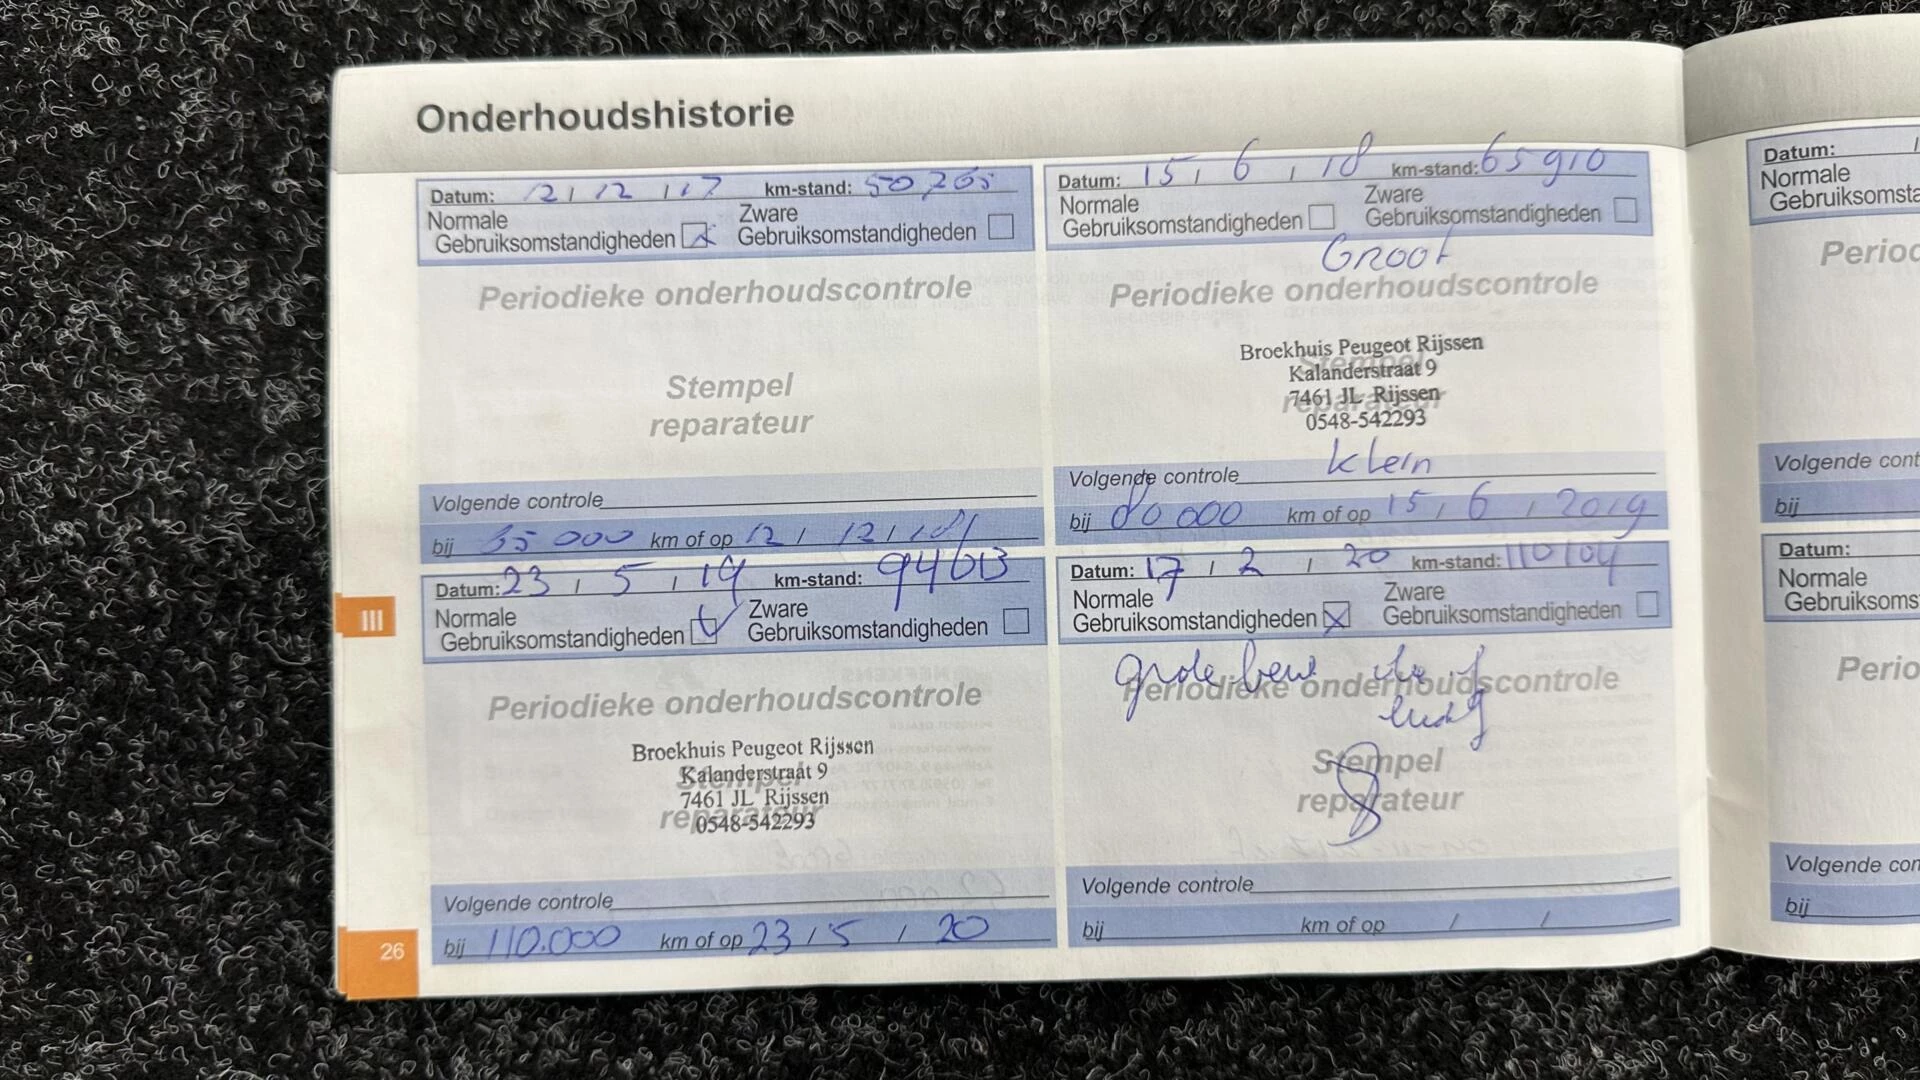 Onderhoudshistorie
Datum: 12 / 12 / 17 km-stand: 50265
Normale
Gebruiksomstandigheden
Zware
Gebruiksomstandigheden
Periodieke onderhoudscontrole
Stempel
reparateur
Volgende controle
bij 65 000 km of op 12 / 12 / 18
Datum: 15 / 6 / 18 km-stand: 65910
Normale
Gebruiksomstandigheden
Zware
Gebruiksomstandigheden
Groot
Periodieke onderhoudscontrole
Broekhuis Peugeot Rijssen
Stempel
Kalanderstraat 9
7461 JL Rijssen
reparateur
0548-542293
Klein
Volgende controle
bij 80 000 km of op 15 / 6 / 2019
III
Datum: 23 / 5 / 19 km-stand: 94613
Normale
Gebruiksomstandigheden
Zware
Gebruiksomstandigheden
Periodieke onderhoudscontrole
Broekhuis Peugeot Rijssen
Kalanderstraat 9
Stempel
7461 JL Rijssen
reparateur
0548-542293
Volgende controle
bij 110.000 km of op 23 / 5 / 20
Datum: 17 / 2 / 20 km-stand: 110104
Normale
Gebruiksomstandigheden
Zware
Gebruiksomstandigheden
grote beurt
Periodieke onderhoudscontrole
Stempel
reparateur
Volgende controle
bij km of op / /
26
Datum:
Normale
Gebruiksomsta
Period
Volgende cont
bij
Datum:
Normale
Gebruiksoms
Perio
Volgende con
bij